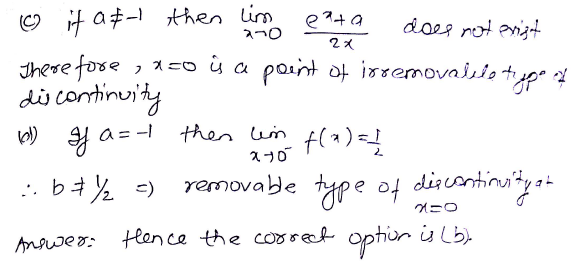 (c) if a ≠ -1 then lim x→0 (e^x + a)/2x does not exist
Therefore, x=0 is a point of irremovable type of
discontinuity
(d) If a = -1 then lim x→0⁻ f(x) = 1/2
∴ b ≠ 1/2 ⇒ removable type of discontinuity at
x=0
Answer: Hence the correct option is (b).